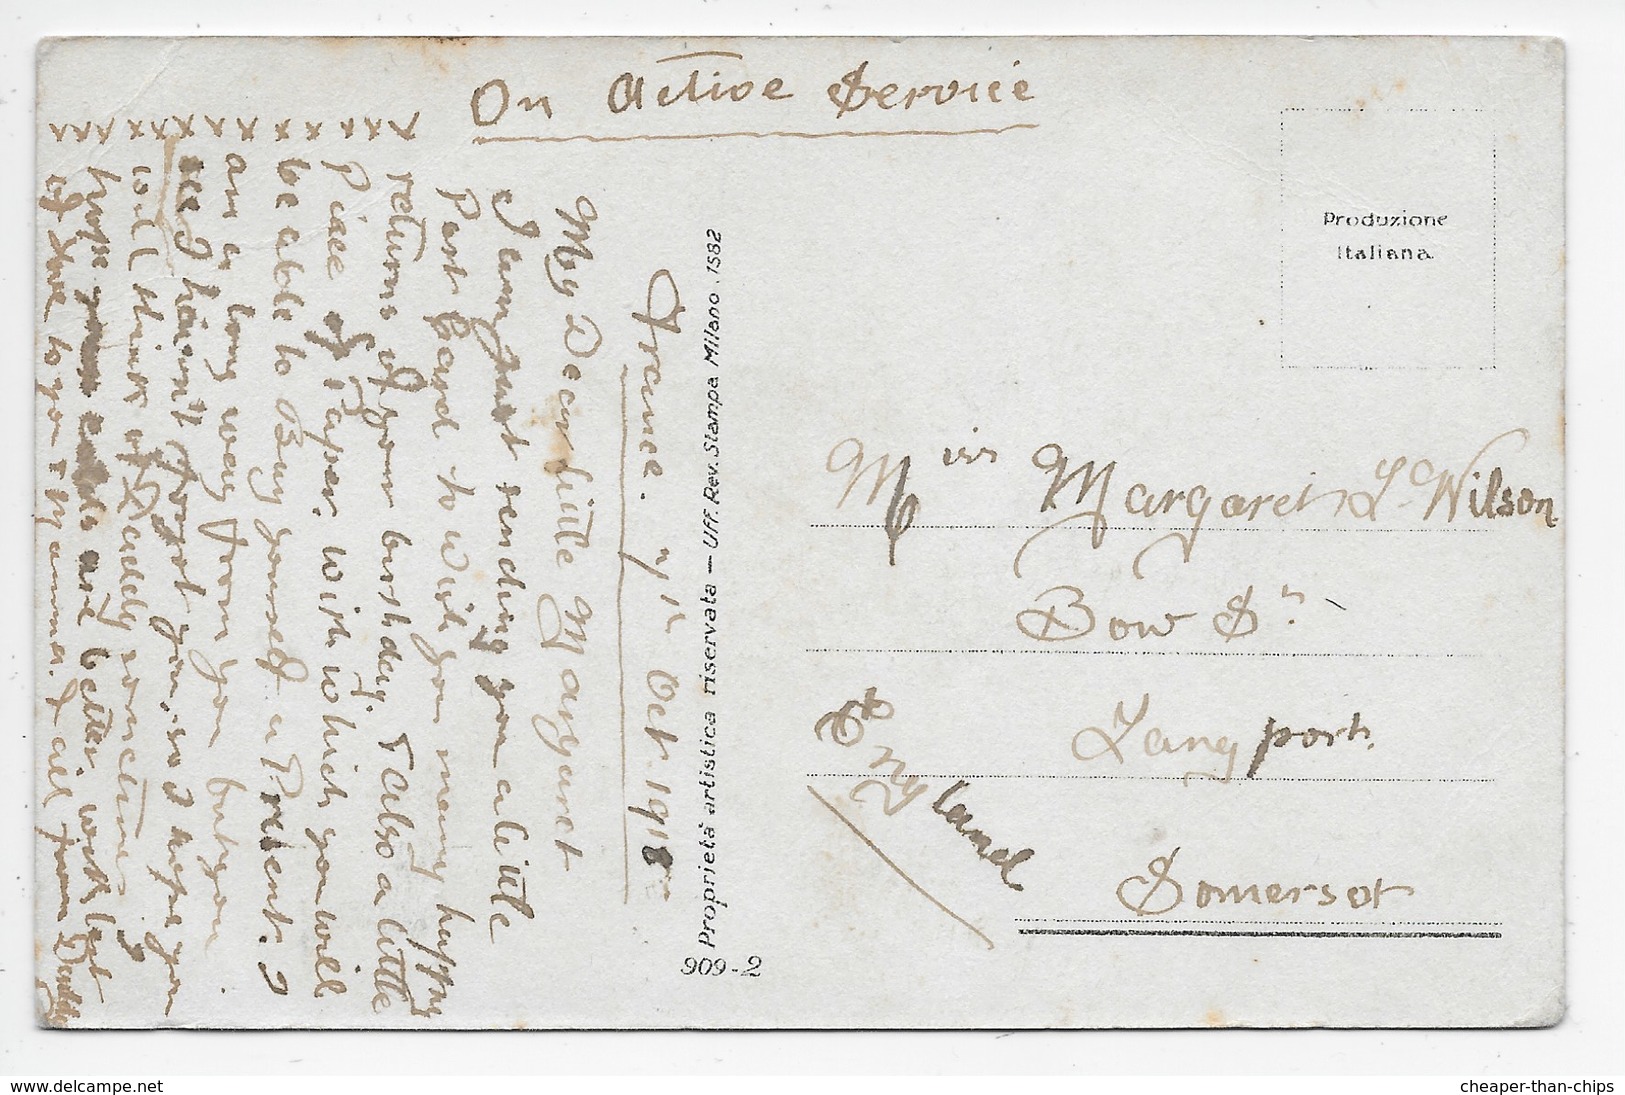 On Active Service
France. 7th Oct. 1918
My Dear little Margaret
I am just sending you a little
Post Card to wish you many happy
returns of your birthday. & also a little
Piece of Paper, with which you will
be able to Buy yourself a Present. I
am a long way from you but you
see I havent forgot you, so I hope you
will think of Daddy sometimes
hope your are better, with best
of love to you & Mamma. of all from Daddy
x x x x x x x x x x x x
Proprietà artistica riservata — Uff. Rev. Stampa Milano. 1582
909-2
Produzione
Italiana
Miss Margaret L Wilson
Bow St.
Langport.
Somerset
England
www.delcampe.net
cheaper-than-chips